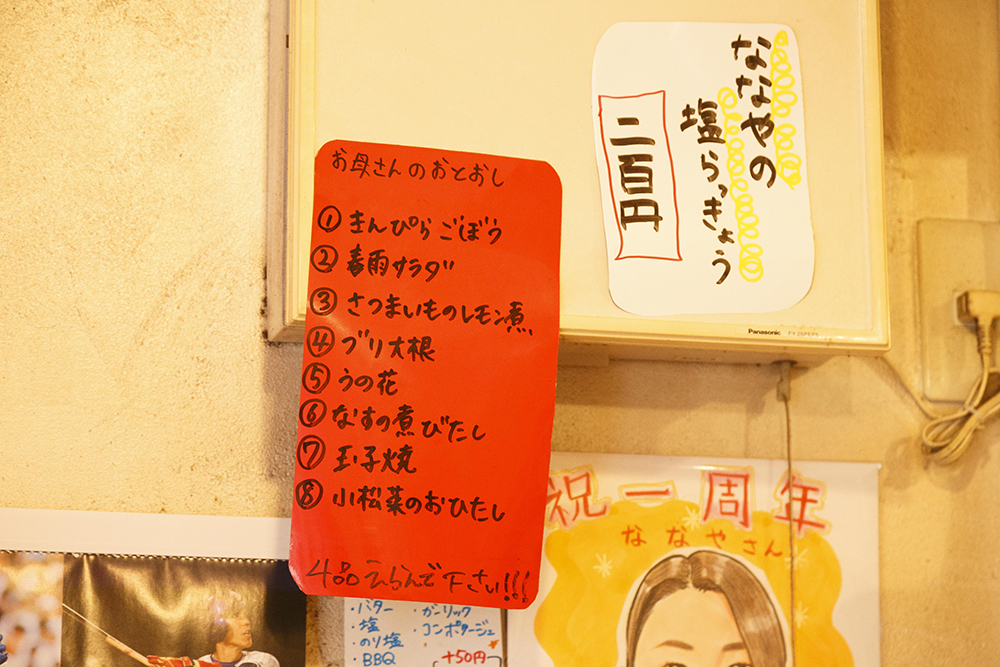 ななやの
塩らっきょう
二百円
お母さんのおとおし
① きんぴらごぼう
② 春雨サラダ
③ さつまいものレモン煮
④ ブリ大根
⑤ うの花
⑥ なすの煮びたし
⑦ 玉子焼
⑧ 小松菜のおひたし
4品えらんで下さい!!!
Panasonic
祝一周年
ななやさん
・バター ・ガーリック
・塩 ・コンポタージュ
・のり塩
・BBQ +50円